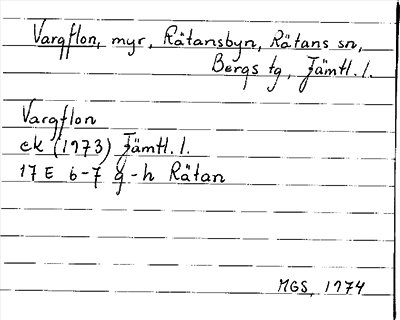 Vargflon, myr, Rätansbyn, Rätans sn,
Bergs tg, Jämtl. l.
Vargflon
ek (1973) Jämtl. l.
17 E 6-7 g-h Rätan
MGS, 1974